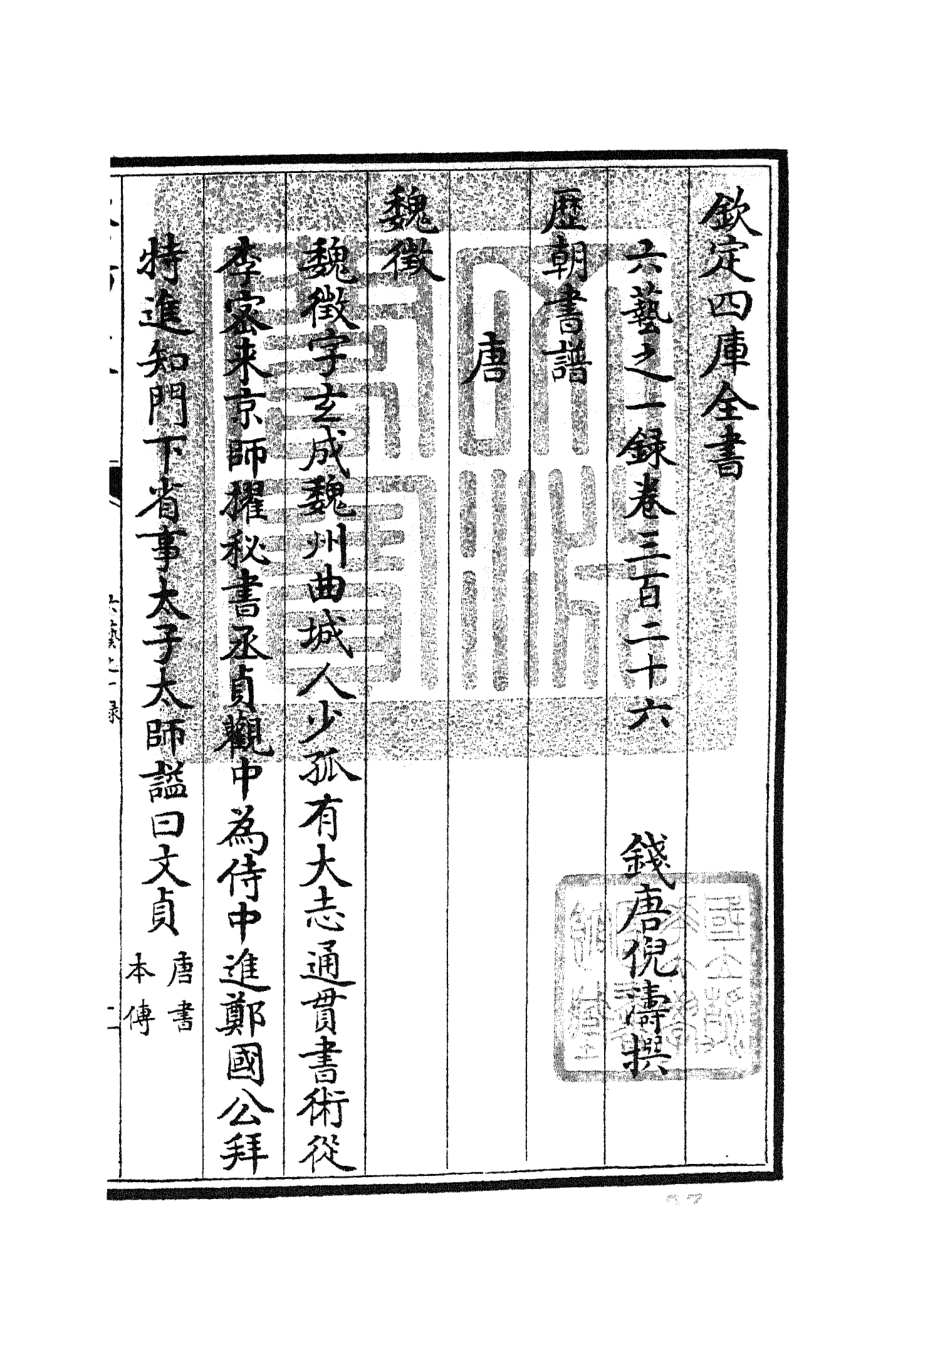 欽定四庫全書
六藝之一録卷三百二十六
錢唐倪濤撰
歴朝書譜
唐
魏徵
魏徵字玄成魏州曲城人少孤有大志通貫書術從
李宻来京師擢秘書丞貞觀中為侍中進鄭國公拜
特進知門下省事太子太師謚曰文貞
唐書
本傳